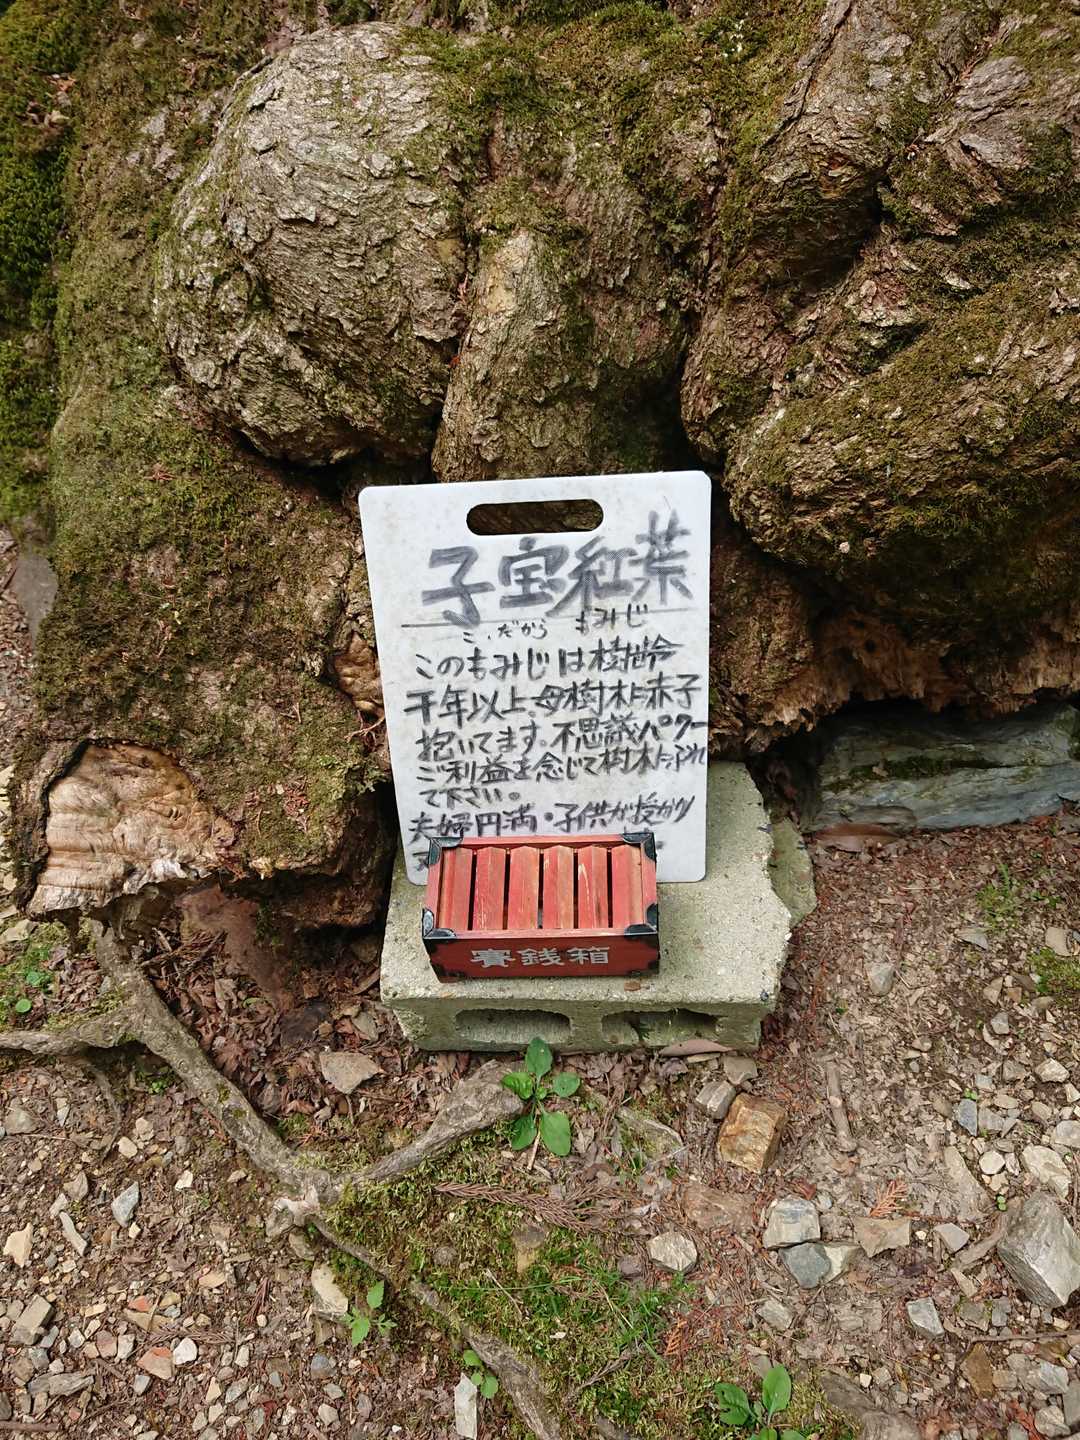 子宝紅葉
こ、だから もみじ
このもみじは樹齢
千年以上母樹木に赤子
抱いてます。不思議パワー
ご利益を念じて樹木にふれ
て下さい。
夫婦円満・子供が授かり
賽銭箱